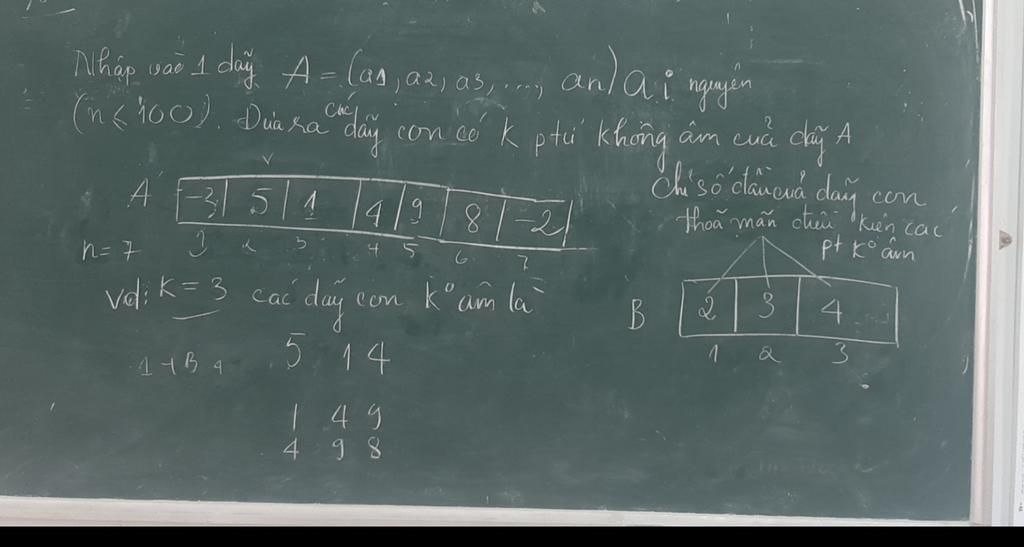 Nhập vào 1 dãy A = (a1, a2, a3, ..., an) ai nguyên
(n ≤ 100). Đưa ra các dãy con có k ptử không âm của dãy A
A -3 5 1 4 9 8 -2
1 2 3 4 5 6 7
n = 7
vd: k = 3 các dãy con k° âm là
5 1 4
1 4 9
4 9 8
Chỉ số đầu của dãy con
thoã mãn điều kiện các
pt k° âm
B 2 3 4
1 2 3